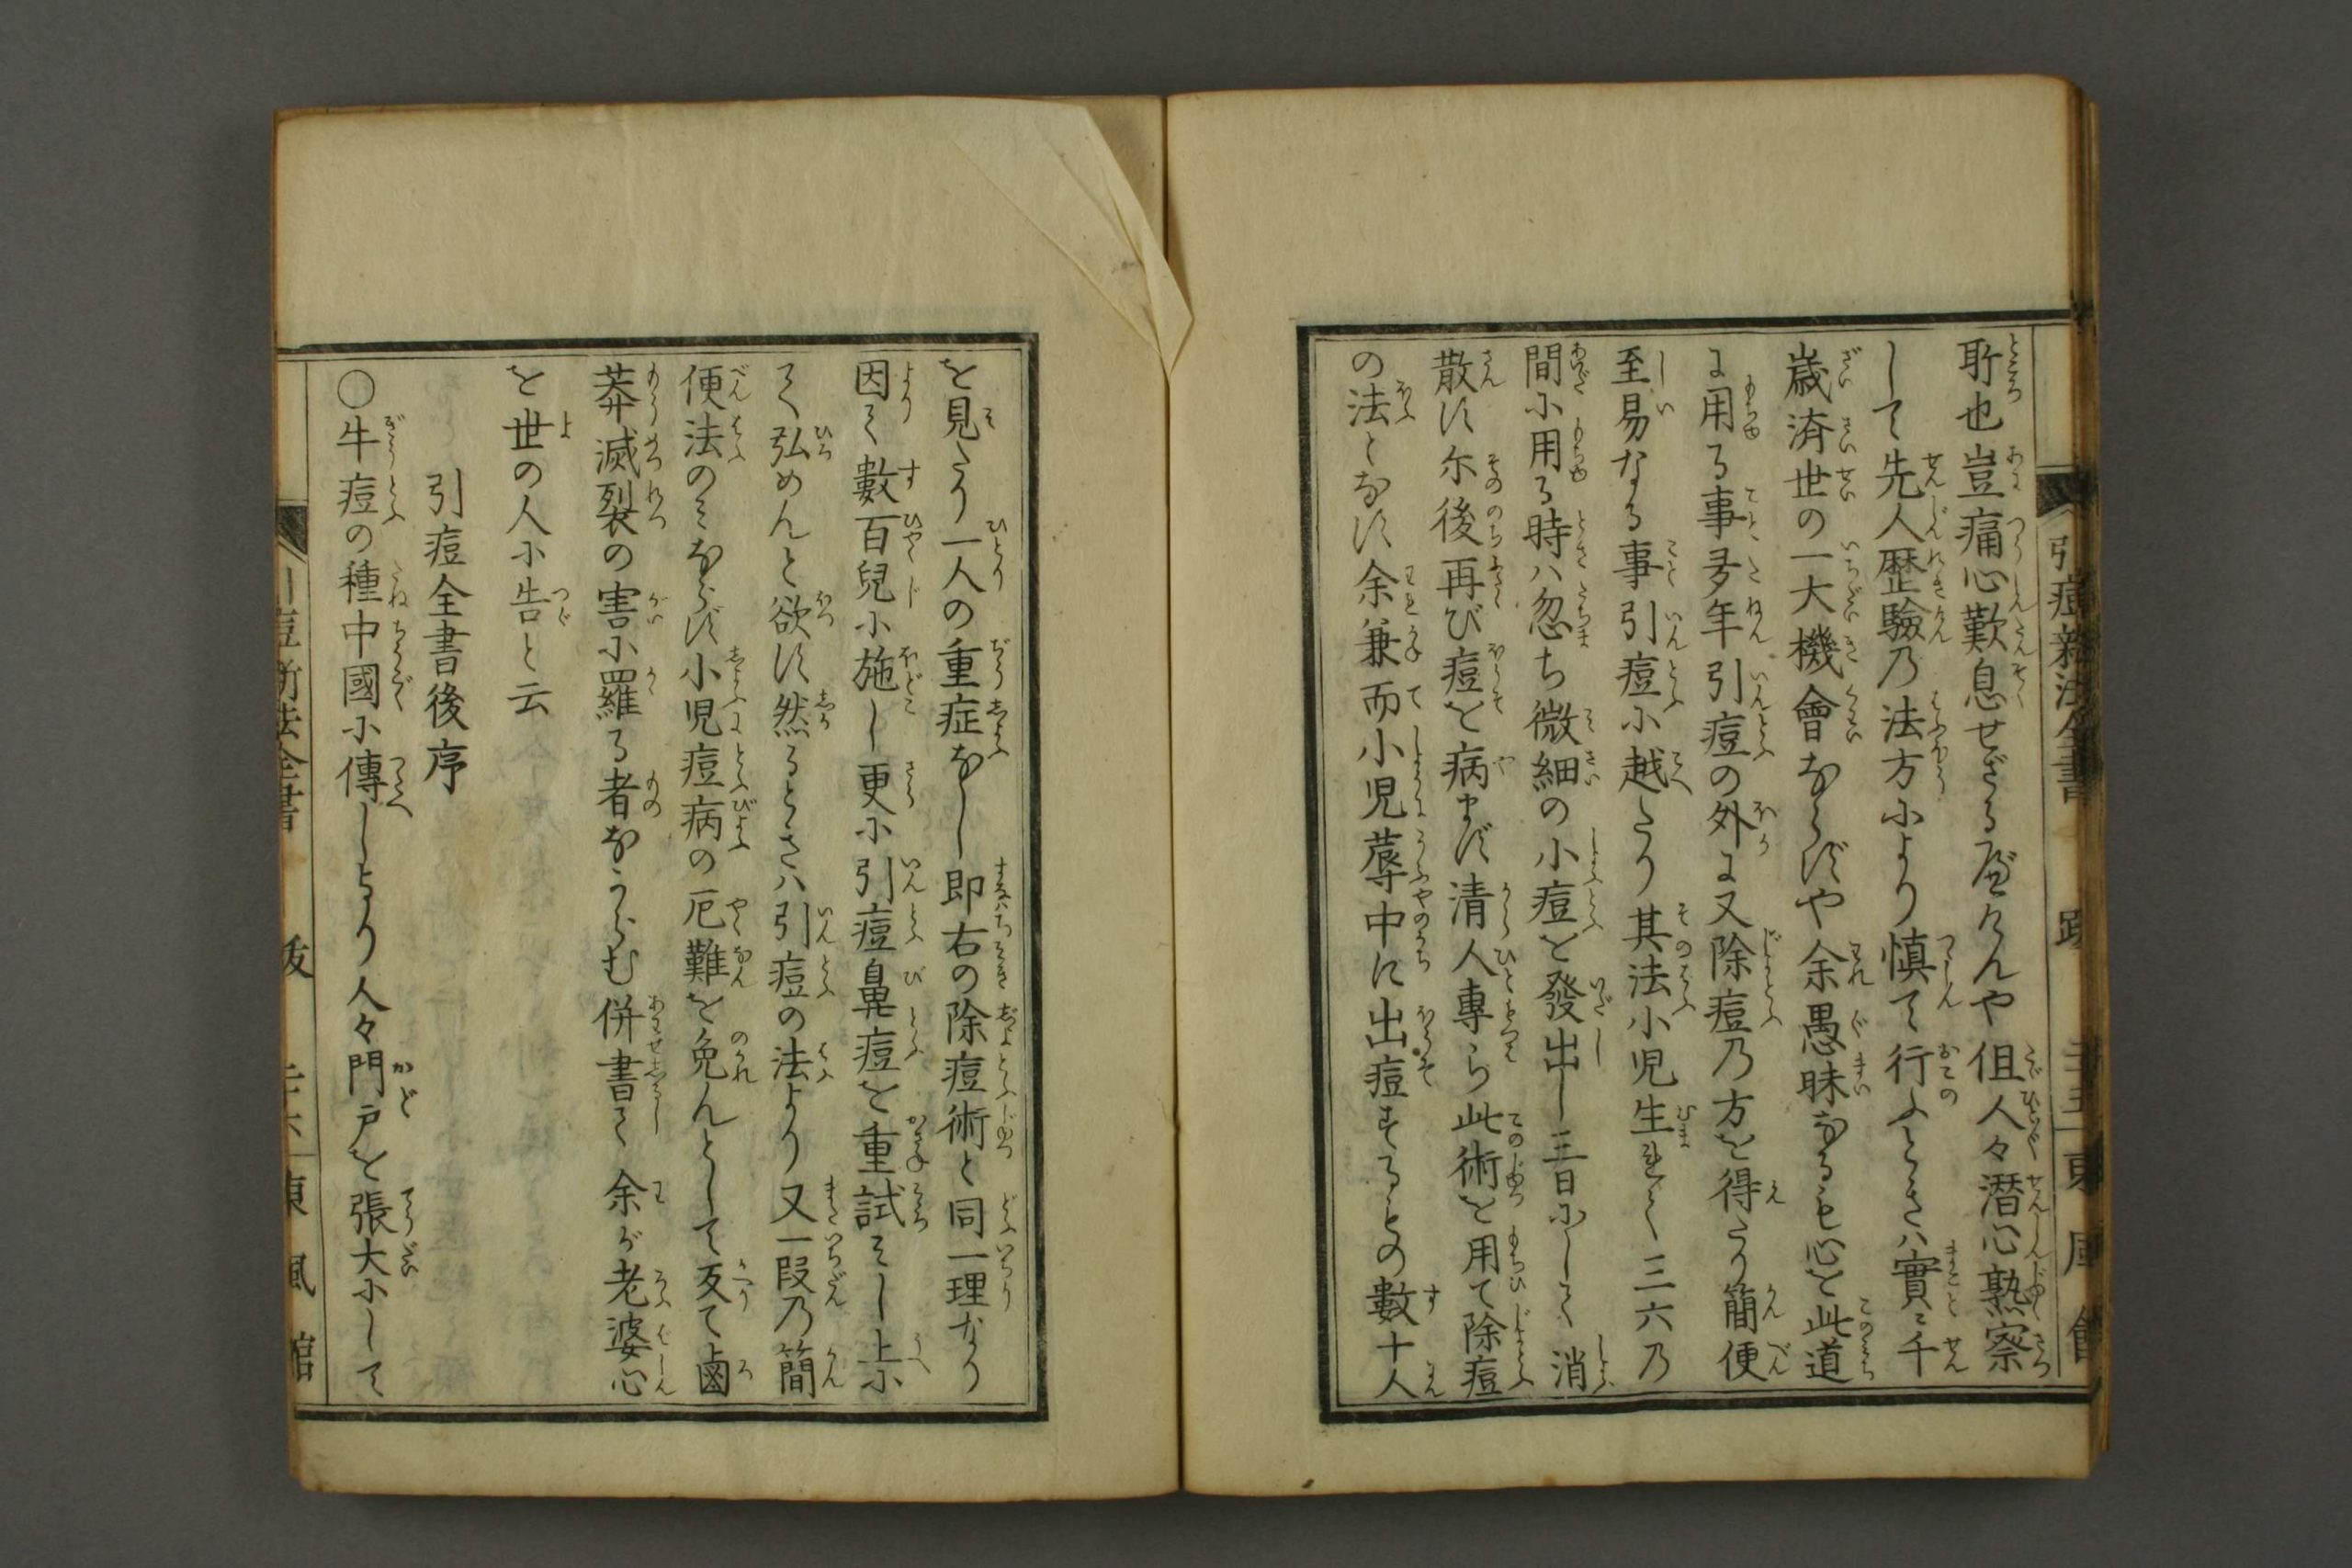 所也豈痛心歎息せざる可けんや但人々潜心熟察
して先人歴驗乃法方により慎て行ふときハ實ニ千
歳済世の一大機會ならずや余愚昧なるも心を此道
に用る事多年引痘の外に又除痘乃方を得たり簡便
至易なる事引痘に越たり其法小児生れて三六乃
間に用る時ハ忽ち微細の小痘を發出し三日にして消
散す尓後再び痘を病まず清人專ら此術を用て除痘
の法となす余兼而小児蓐中に出痘するもの數十人
を見たり一人の重症なし即右の除痘術と同一理なり
因て數百兒に施し更に引痘鼻痘を重試みし上に
て弘めんと欲す然るときハ引痘の法より又一段乃簡
便法のみならず小児痘病の厄難を免んとして反て鹵
莽滅裂の害に羅る者なからむ併書て余が老婆心
を世の人に告と云
引痘全書後序
〇牛痘の種中國に傳しより人々門戸を張大にして